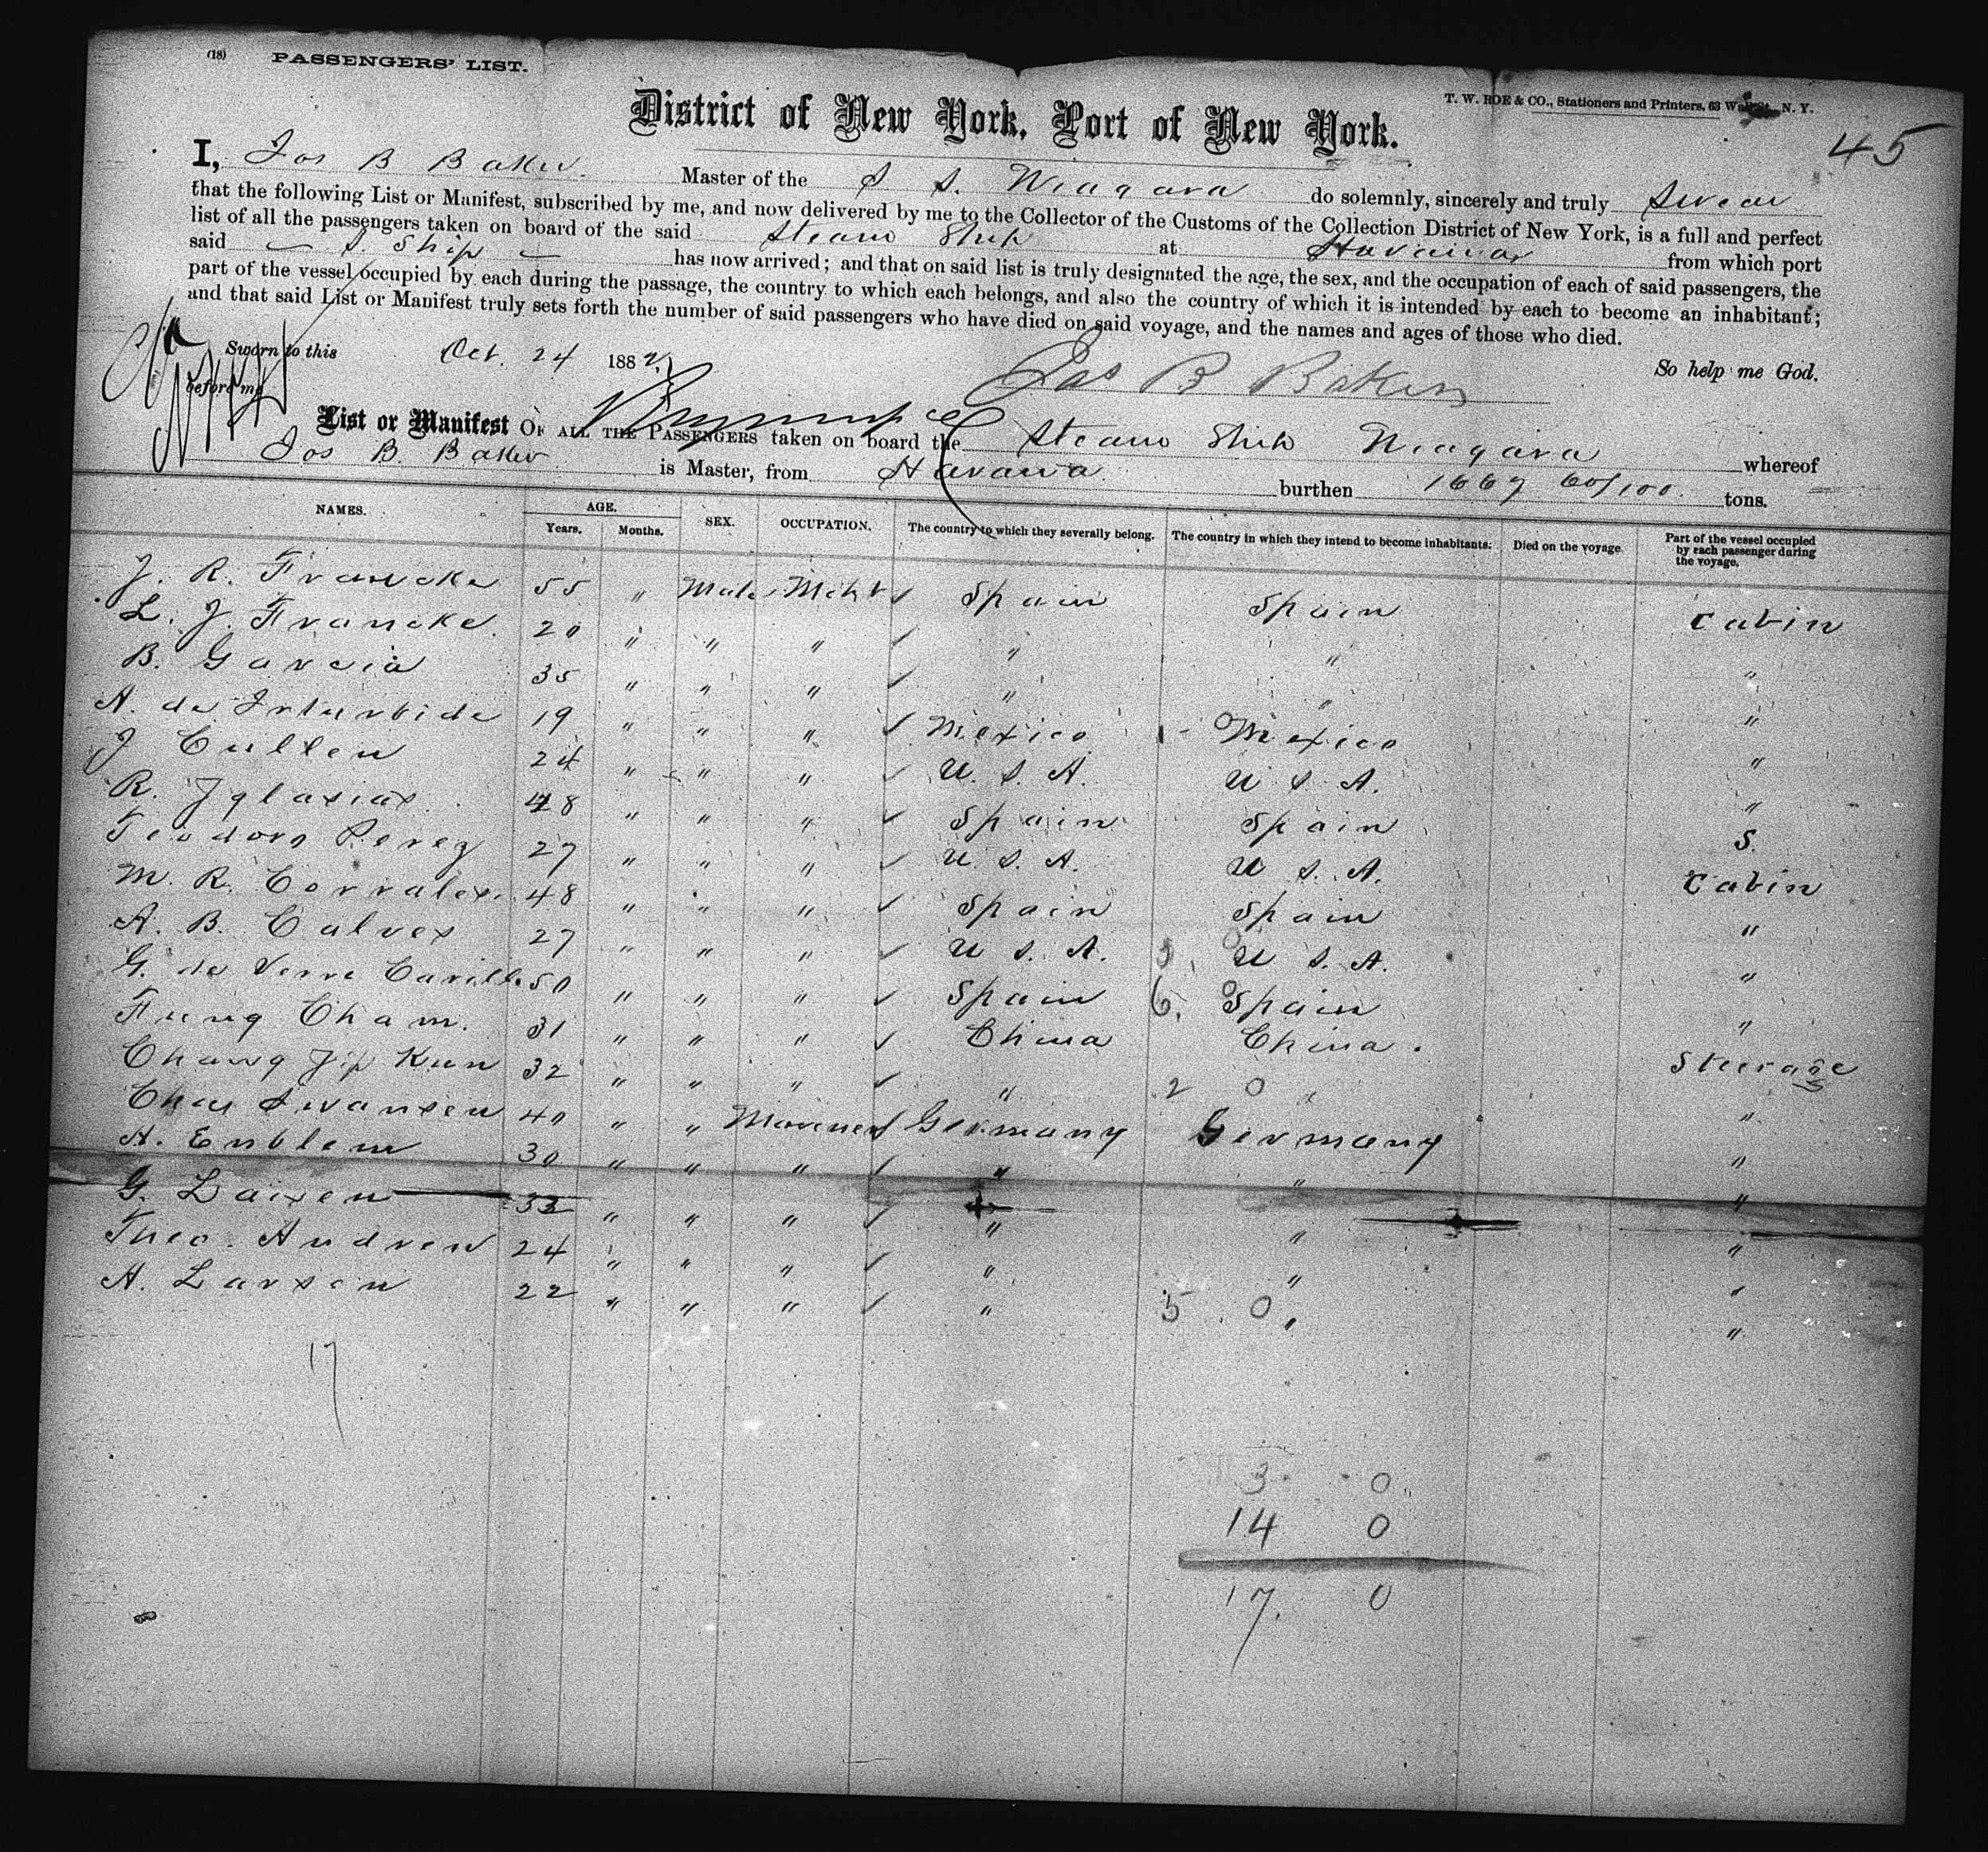 (18) PASSENGERS' LIST.
T. W. ROE & CO., Stationers and Printers, 63 Wall St., N. Y.
District of New York, Port of New York.
45
I, Jos B Baker Master of the S S. Niagara do solemnly, sincerely and truly Swear
that the following List or Manifest, subscribed by me, and now delivered by me to the Collector of the Customs of the Collection District of New York, is a full and perfect
list of all the passengers taken on board of the said Steam Ship at Havana from which port
said S. Ship has now arrived; and that on said list is truly designated the age, the sex, and the occupation of each of said passengers, the
part of the vessel occupied by each during the passage, the country to which each belongs, and also the country of which it is intended by each to become an inhabitant;
and that said List or Manifest truly sets forth the number of said passengers who have died on said voyage, and the names and ages of those who died.
So help me God.
Sworn to this Oct. 24 1882
before me
Jas B Baker
List or Manifest OF ALL THE PASSENGERS taken on board the Steam Ship Niagara whereof
Jos B. Baker is Master, from Havana burthen 1667 60/100 tons.
NAMES. AGE. Years. Months. SEX. OCCUPATION. The country to which they severally belong. The country in which they intend to become inhabitants. Died on the voyage. Part of the vessel occupied by each passenger during the voyage.
J. R. Francke 55 " Male Mcht ✓ Spain Spain Cabin
L. J. Francke 20 " " " ✓ " " "
B. Garcia 35 " " " ✓ " " "
A. de Iturbide 19 " " " ✓ Mexico 1 0 Mexico "
J Cullen 24 " " " ✓ U. S. A. U S A. "
R. Iglasias 48 " " " ✓ Spain Spain S.
Teodoro Perez 27 " " " ✓ U. S. A. U S. A. Cabin
M. R. Corrales. 48 " " " ✓ Spain Spain "
A. B. Calves 27 " " " ✓ U S. A. 3 0 U S. A. "
G. de Serra 50 " " " ✓ Spain 6. 0 Spain "
Fung Cham. 31 " " " ✓ China China. Steerage
Chang Jip Kun 32 " " " ✓ " 2 0 " "
Chas Swansen 40 " " Mariner ✓ Germany Germany "
A. Enblem 30 " " " ✓ " " "
G. Laisen 33 " " " ✓ " " "
Theo. Andren 24 " " " ✓ " " "
A. Larsen 22 " " " ✓ " 5 0 " "
17
3 0
14 0
17. 0